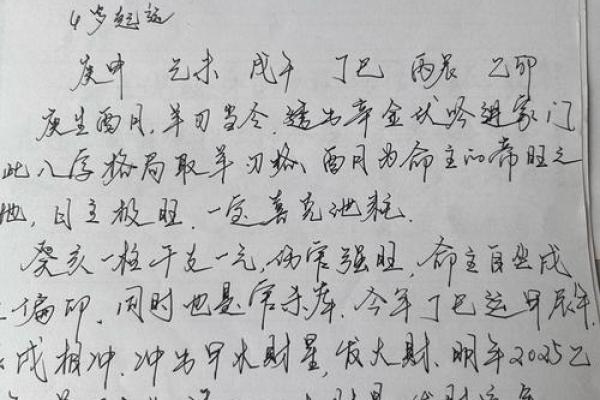 4岁起运
庚申 己未 戊午 丁巳 丙辰 乙卯
庚生酉月，羊刃当令，透出辛金伏吟进家门
此八字格局取羊刃格、酉月为命主的帝旺之
地，日主极旺，一定喜克泄耗.
癸亥一柱干支一元，伤官强旺，命主自坐戌
偏印，同时也是官杀库，今年丁巳运甲辰年，
戌相冲，冲出甲木财星，发大财，明年2025乙